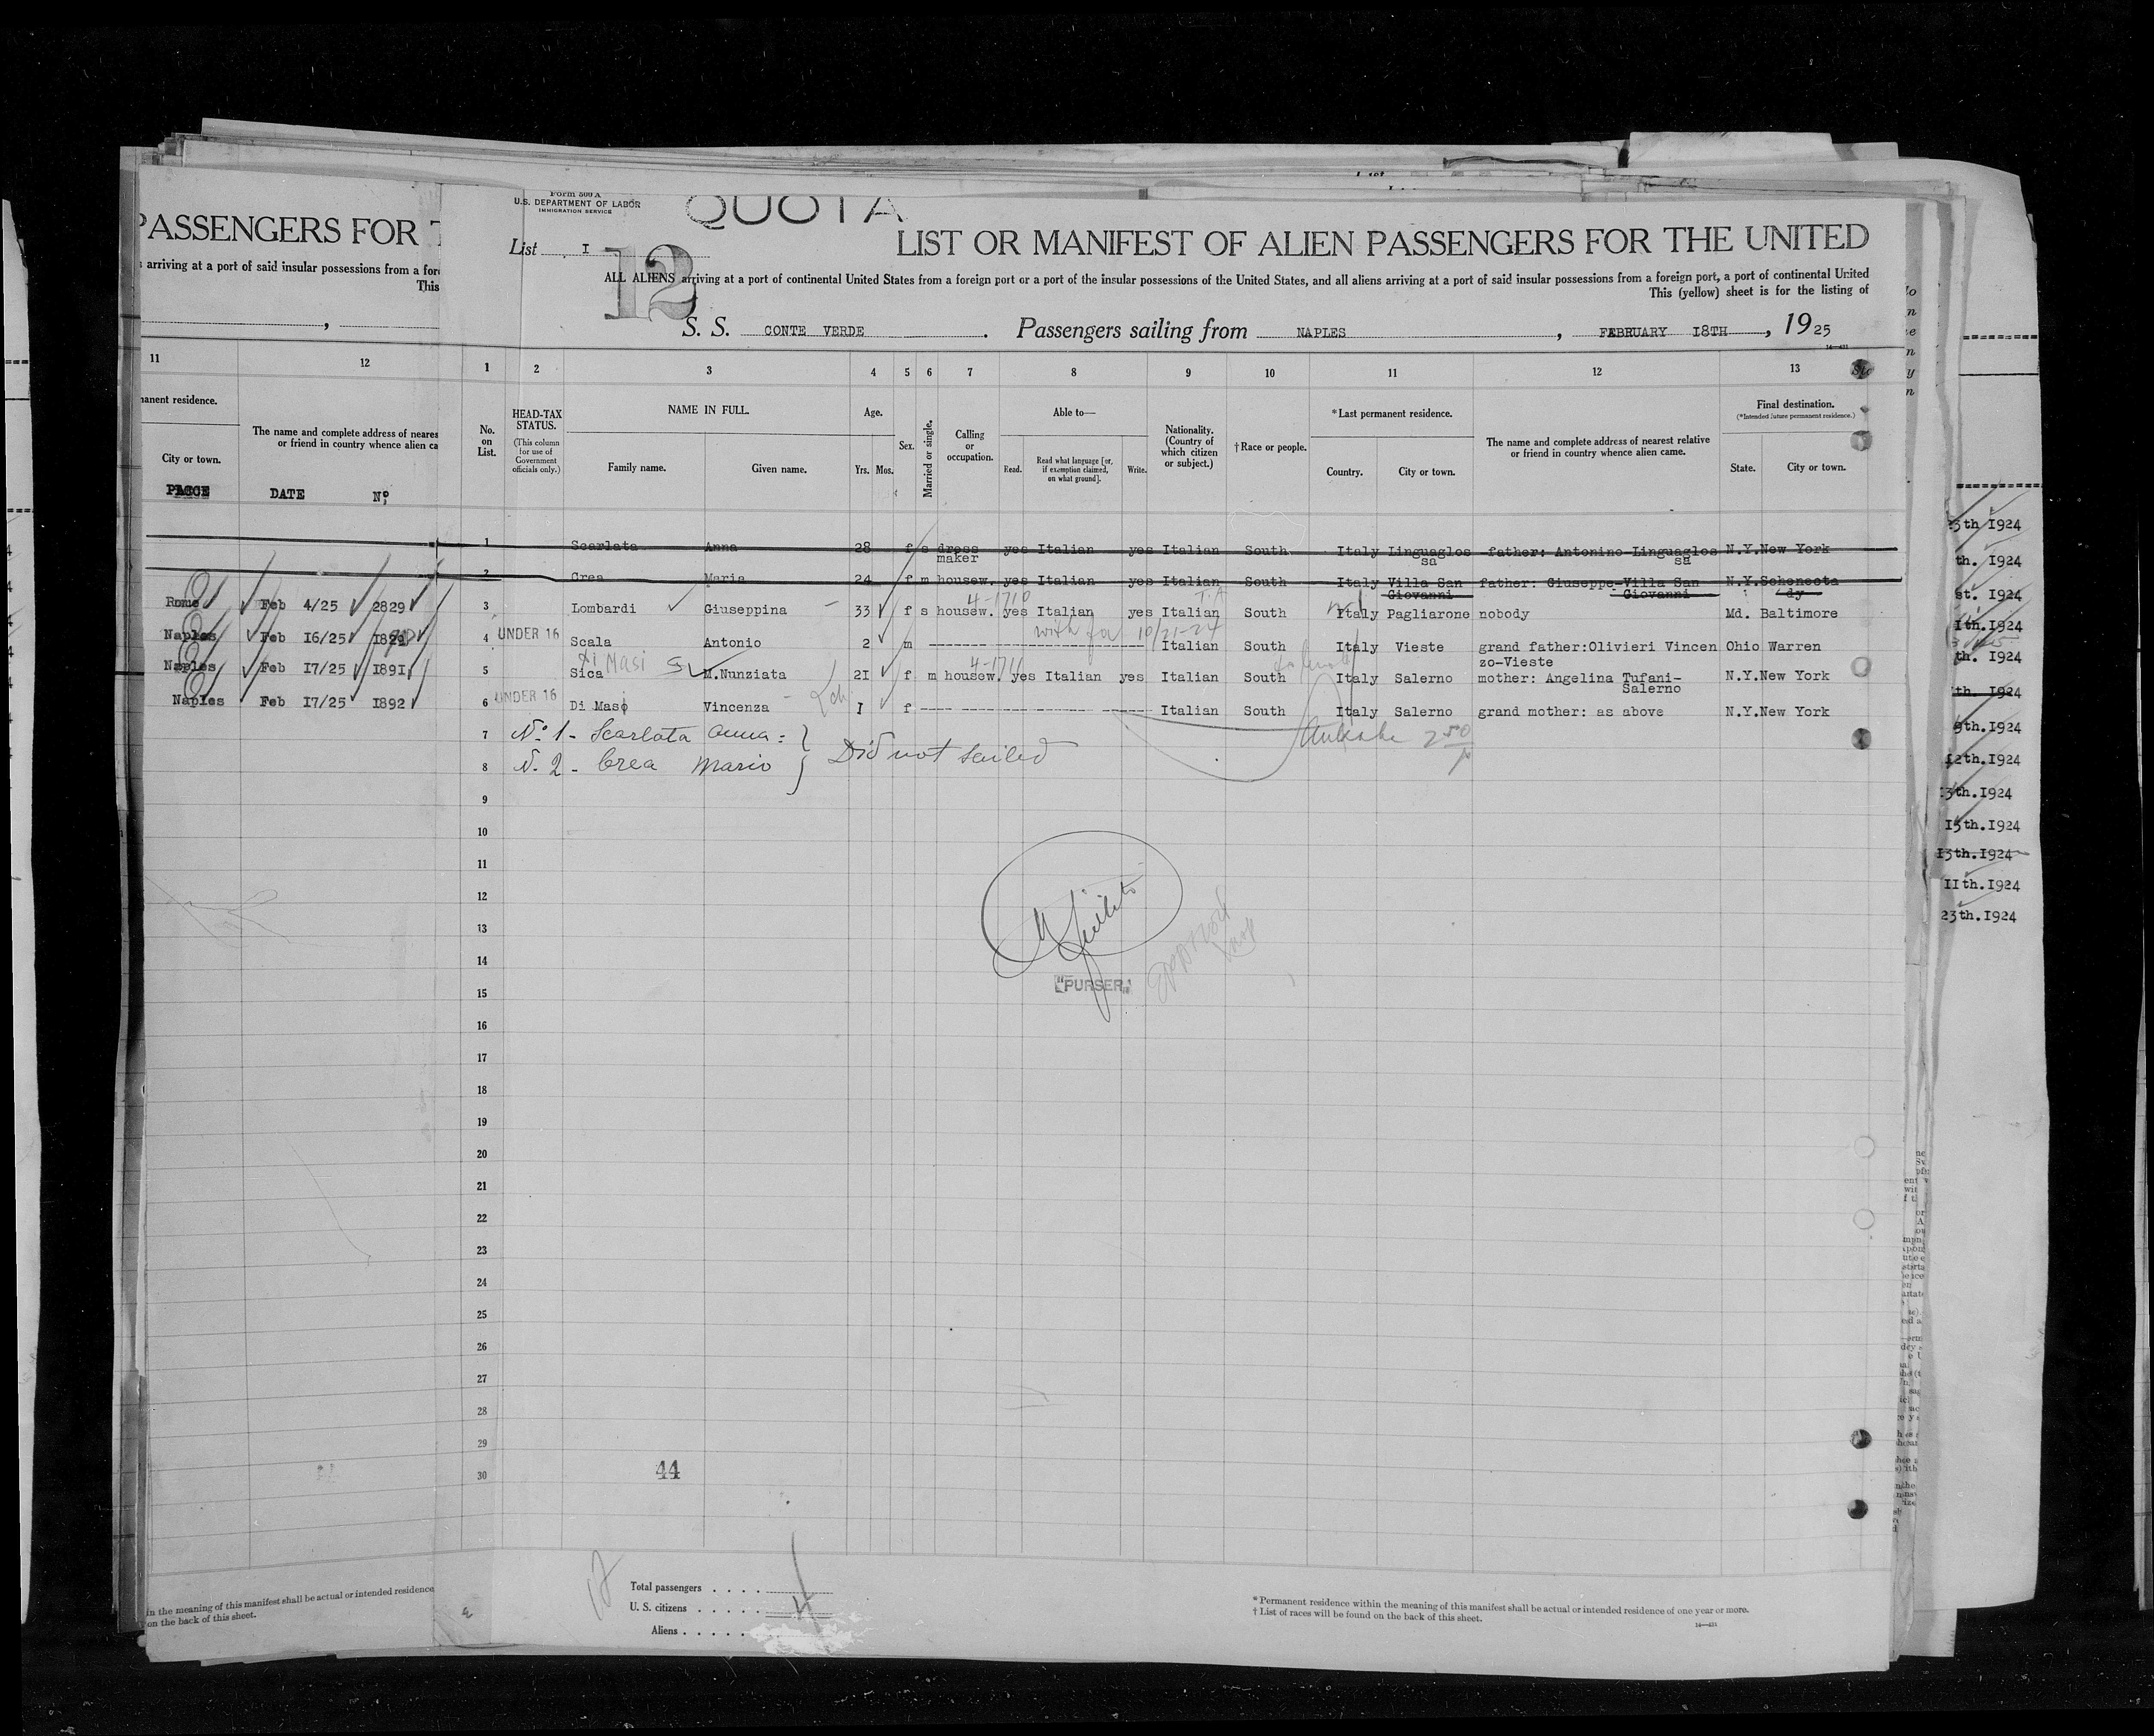 PASSENGERS FOR T
arriving at a port of said insular possessions from a fore
This
11 12
manent residence.
The name and complete address of neares
or friend in country whence alien ca
City or town.
PLACE DATE Nº
Rome Feb 4/25 2829
Naples Feb 16/25
Naples Feb 17/25 1891
Naples Feb 17/25 1892
in the meaning of this manifest shall be actual or intended residence
on the back of this sheet.
Form 500 A
U.S. DEPARTMENT OF LABOR
IMMIGRATION SERVICE
QUOTA
List I
12
LIST OR MANIFEST OF ALIEN PASSENGERS FOR THE UNITED
ALL ALIENS arriving at a port of continental United States from a foreign port or a port of the insular possessions of the United States, and all aliens arriving at a port of said insular possessions from a foreign port, a port of continental United
This (yellow) sheet is for the listing of
S. S. CONTE VERDE. Passengers sailing from NAPLES, FEBRUARY 18TH, 1925
14—431
1 2 3 4 5 6 7 8 9 10 11 12 13
No. on List.
HEAD-TAX STATUS.
(This column for use of Government officials only.)
NAME IN FULL.
Family name. Given name.
Age.
Yrs. Mos.
Sex.
Married or single.
Calling or occupation.
Able to—
Read. Read what language [or, if exemption claimed, on what ground]. Write.
Nationality. (Country of which citizen or subject.)
†Race or people.
*Last permanent residence.
Country. City or town.
The name and complete address of nearest relative or friend in country whence alien came.
Final destination.
(*Intended future permanent residence.)
State. City or town.
1 Scarlata Anna 28 f s dress maker yes Italian yes Italian South Italy Linguaglossa father: Antonino-Linguaglossa N.Y. New York
2 Crea Maria 24 f m housew. yes Italian yes Italian South Italy Villa San Giovanni father: Giuseppe-Villa San Giovanni N.Y. Schenectady
4-1710
3 Lombardi Giuseppina 33 f s housew. yes Italian yes Italian South Italy Pagliarone nobody Md. Baltimore
10/21-24
4 UNDER 16 Scala Antonio 2 m Italian South Italy Vieste grand father:Olivieri Vincen Ohio Warren
zo-Vieste
di Masi 4-1711
5 Sica M.Nunziata 21 f m housew. yes Italian yes Italian South Italy Salerno mother: Angelina Tufani- N.Y. New York
Salerno
6 UNDER 16 Di Maso Vincenza I f Italian South Italy Salerno grand mother: as above N.Y. New York
7 Nº 1 - Scarlata Anna :
8 N. 2 - Crea Maria } Did not sailed
9
10
11
12
13
14
"PURSER"
15
16
17
18
19
20
21
22
23
24
25
26
27
28
29
30
44
Total passengers . . . .
U. S. citizens . . . . .
Aliens . . . . .
*Permanent residence within the meaning of this manifest shall be actual or intended residence of one year or more.
†List of races will be found on the back of this sheet.
14—431
th. 1924
st. 1924
1th.1924
th. 1924
th. 1924
9th.1924
12th.1924
13th.1924
15th.1924
13th.1924
11th.1924
23th.1924